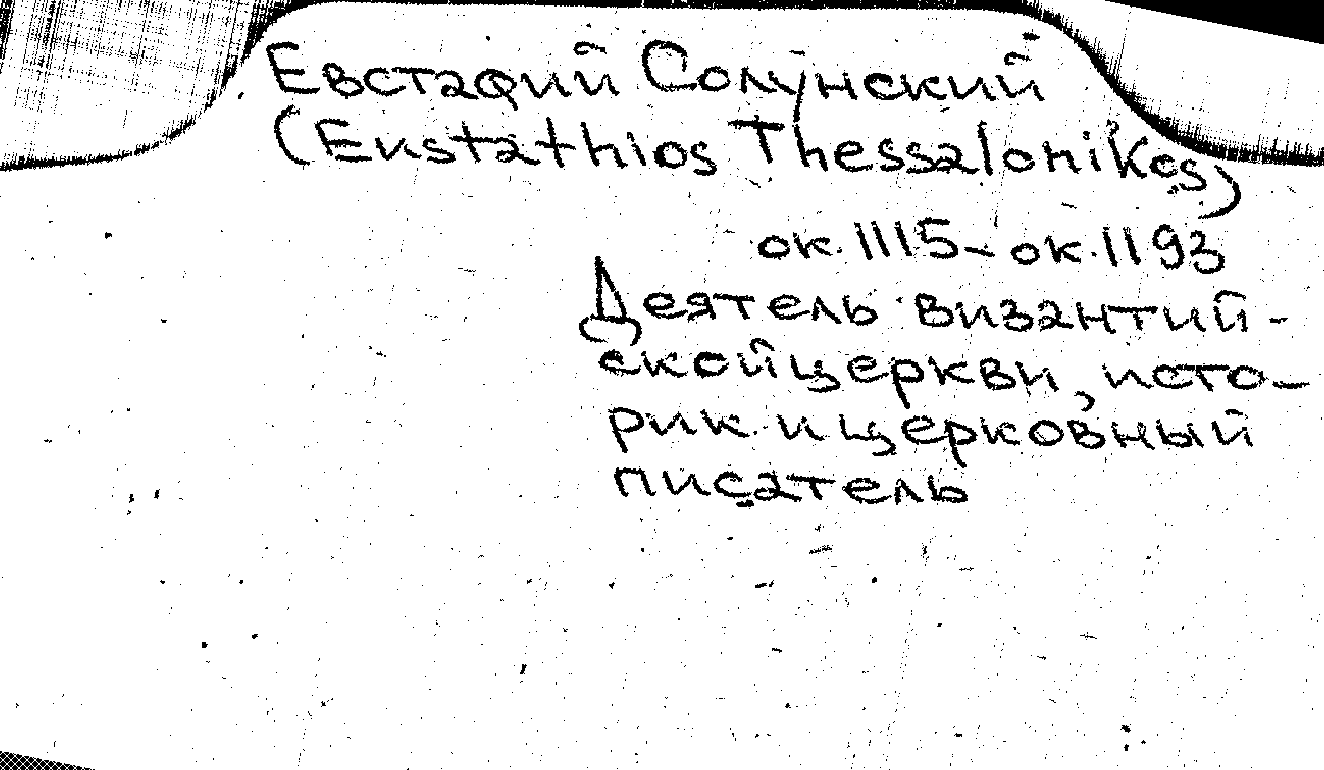 Евстафий Солунский
(Eustathios Thessalonikes)
ок. 1115 - ок. 1193
Деятель византий-
ской церкви, исто-
рик и церковный
писатель